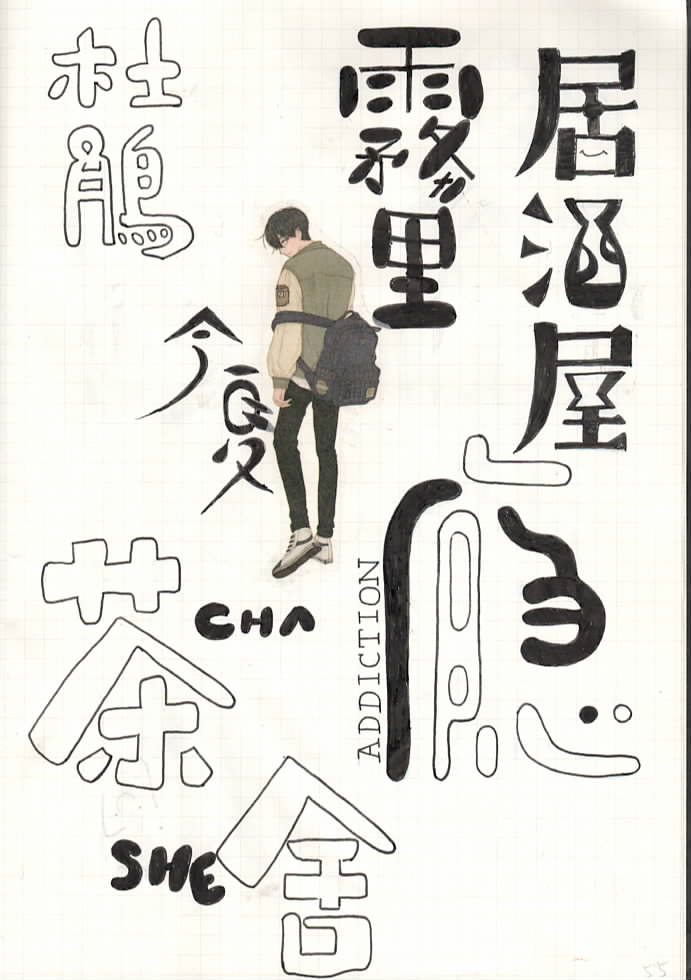 杜鹃
霧里
居酒屋
今夏
瘾
ADDICTION
茶
CHA
舍
SHE
55